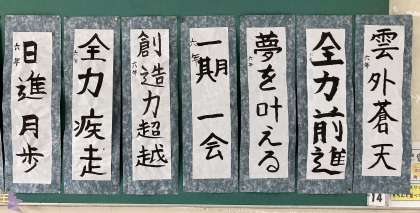 雲外蒼天
六年
全力前進
六年
夢を叶える
六年
一期一会
六年
創造力超越
六年
全力疾走
六年
日進月歩
六年
14